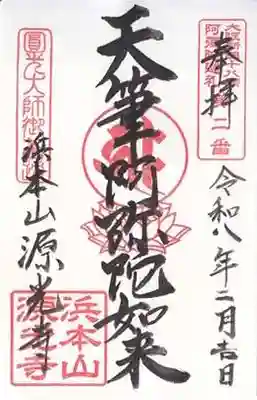 第二番
奉拝
令和八年二月吉日
天筆阿弥陀如来
圓光大師御
浜本山源光寺
浜本山
源光寺